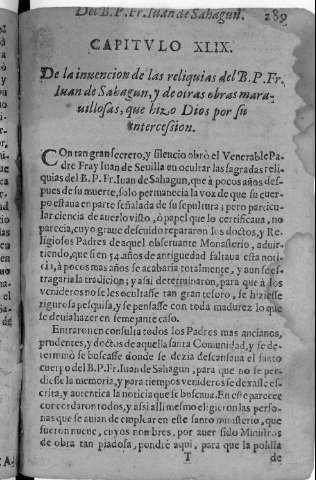 Del B. P. Fr. Iuan de Sahagun. 289
CAPITVLO XLIX.
De la inuencion de las reliquias del B. P. Fr.
Iuan de Sahagun, y de otras obras mara-
uillosas, que hizo Dios por su
intercession.
COn tan gran secreto, y silencio obrò el Venerable Pa-
dre Fray Iuan de Seuilla en ocultar las sagradas reli-
quias del B. P. Fr. Iuan de Sahagun, que à pocos años des-
pues de su muerte, solo permanecia la voz de que su cuer-
po estaua en parte señalada de su sepultura; pero particu-
lar ciencia de auerlo visto, ò papel que lo certificaua, no
parecia, cuyo graue descuido repararon los doctos, y Re-
ligiosos Padres de aquel obseruante Monasterio, aduir-
tiendo, que si en 54. años de antiguedad faltaua esta noti-
cia, à pocos mas años se acabaria totalmente, y aun se es-
tragaria la tradicion; y assi determinaron, para que à los
venideros no se les ocultasse tan gran tesoro, se hiziesse
rigurosa pesquisa, y se pensasse con toda madurez lo que
se deuia hazer en semejante caso.
Entraron en consulta todos los Padres mas ancianos,
prudentes, y doctos de aquella santa Comunidad, y se de-
terminò se buscasse donde se dezia descansaua el santo
cuerpo del B. P. Fr. Iuan de Sahagun, para que no se per-
diesse la memoria, y para tiempos venideros se dexasse es-
crita, y autentica la noticia que se buscaua. En este parecer
concordaron todos, y assi alli mesmo eligieron las perso-
nas que se auian de emplear en este santo ministerio, que
fueron nueue, cuyos nombres, por auer sido Ministros
de obra tan piadosa, pondrè aqui, para que la polilla
T de